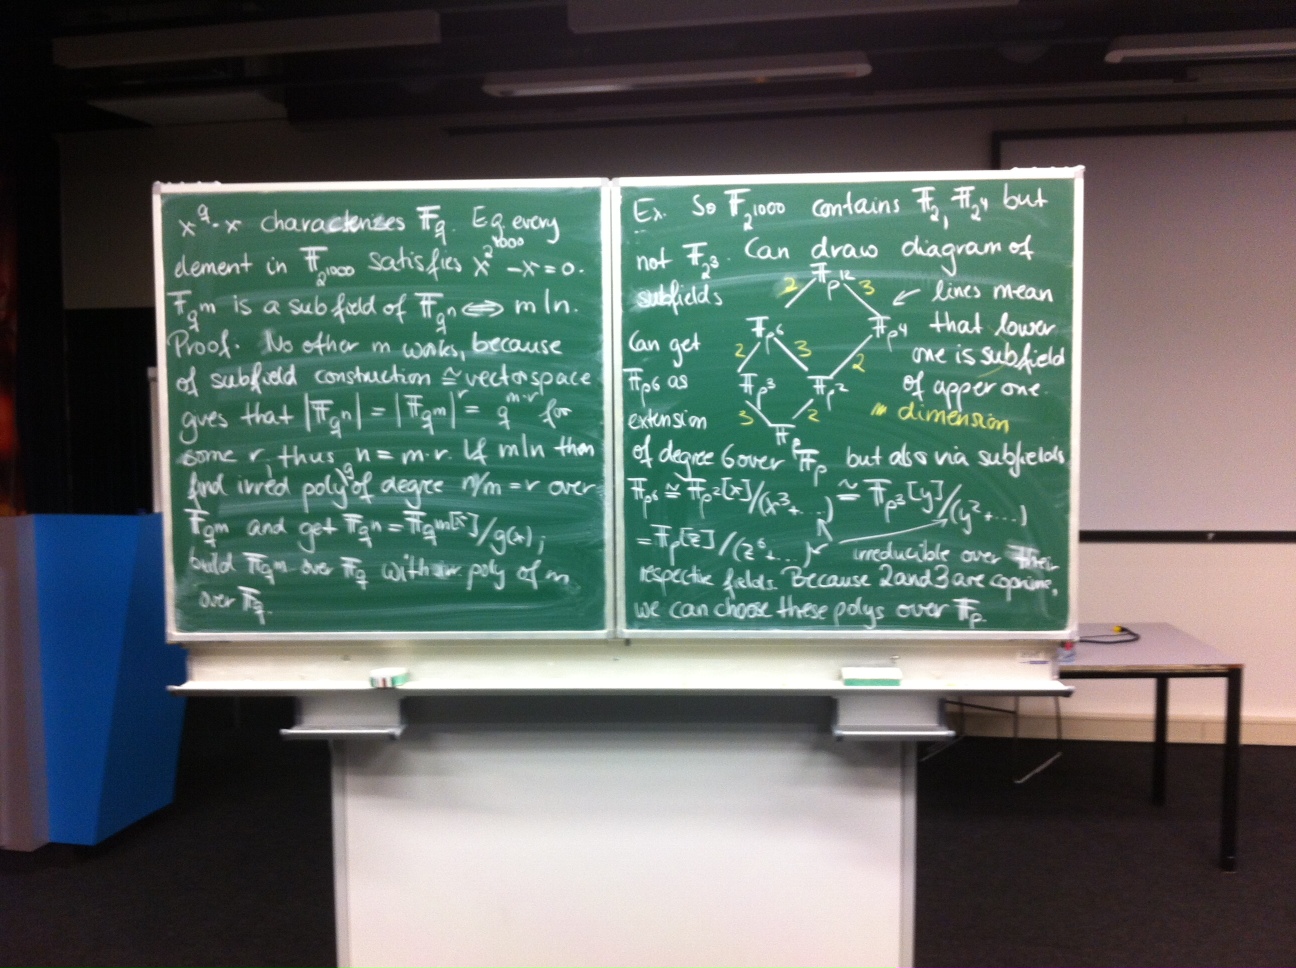 x^q - x characterizes 𝔽_q. Eg. every
element in 𝔽_{2^1000} satisfies x^{2^1000} - x = 0.
𝔽_{q^m} is a subfield of 𝔽_{q^n} ⟺ m|n.
Proof. No other m works, because
of subfield construction ≅ vectorspace
gives that |𝔽_{q^n}| = |𝔽_{q^m}|^r = q^{m·r} for
some r, thus n = m·r. If m|n then
find irred poly g of degree n/m = r over
𝔽_{q^m} and get 𝔽_{q^n} = 𝔽_{q^m}[x]/g(x),
build 𝔽_{q^m} over 𝔽_q with poly of m
over 𝔽_q.
Ex. So 𝔽_{2^1000} contains 𝔽_2, 𝔽_{2^4} but
not 𝔽_{2^3}. Can draw diagram of
subfields
𝔽_{p^12}
2 3
← lines mean
𝔽_{p^6} 𝔽_{p^4}
that lower
2 3 2
one is subfield
𝔽_{p^3} 𝔽_{p^2}
of apper one.
3 2
dimension
𝔽_p
Can get
𝔽_{p^6} as
extension
of degree 6 over 𝔽_p but also via subfields
𝔽_{p^6} ≅ 𝔽_{p^2}[x]/(x^3+...) ≅ 𝔽_{p^3}[y]/(y^2+...)
= 𝔽_p[z]/(z^6+...) irreducible over their
respective fields. Because 2 and 3 are coprime,
we can choose these polys over 𝔽_p.